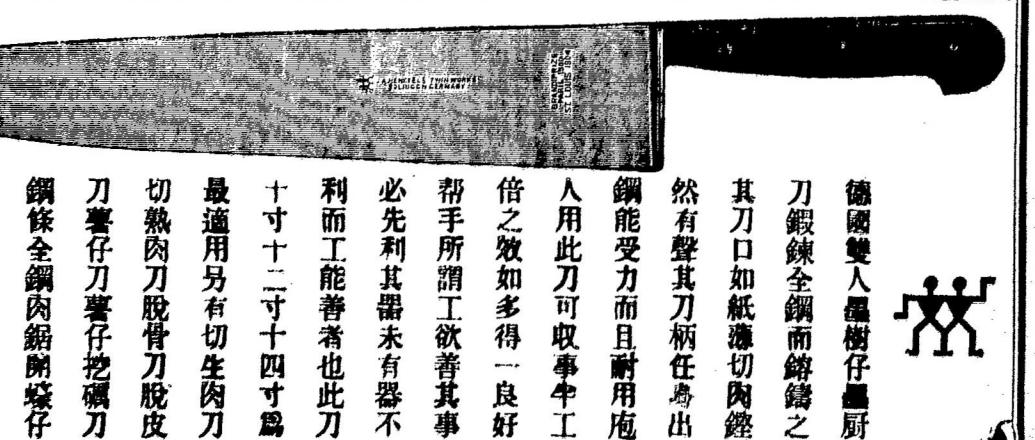 J.A.HENCKELS TWIN WORKS
SOLINGEN GERMANY
ST LOUIS 1904
德國雙人嘜樹仔嘜厨
刀鍛鍊全鋼而鎔鑄之
其刀口如紙薄切肉鏗
然有聲其刀柄任出
鋼能受力而且耐用庖
人用此刀可收事半工
倍之效如多得一良好
帮手所謂工欲善其事
必先利其器未有器不
利而工能善者也此刀
十寸十二寸十四寸爲
最適用另有切生肉刀
切熟肉刀脫骨刀脫皮
刀薯仔刀薯仔挖礪刀
鋼條全鋼肉鋸開蠔仔